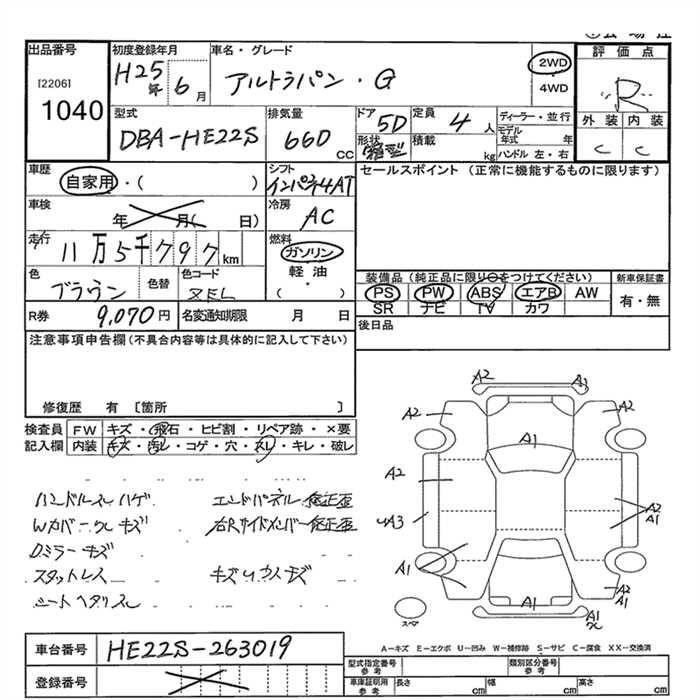 出品番号
[2206]
1040
初度登録年月
H25年 6月
車名・グレード
アルトラパン・G
2WD
4WD
評価点
R
外装 内装
C C
型式
DBA-HE22S
排気量
660 CC
ドア
5D
形状
箱型
定員
4 人
積載
kg
ディーラー・並行
モデル年式 年
ハンドル 左・右
車歴
自家用・( )
シフト
インパネ4AT
セールスポイント (正常に機能するものに限ります)
車検
年 月( 日)
冷房
AC
走行
11万5千797km
燃料
ガソリン
軽油
・( )
色
ブラウン
色替
色コード
ZEL
装備品 (純正品に限り○をつけてください)
PS PW ABS エアB AW
SR ナビ TV カワ
新車保証書
有・無
R券
9,070円
名変通知期限 月 日
後日品
注意事項申告欄 (不具合内容等は具体的に記入して下さい)
修復歴 有 [箇所 ]
検査員記入欄
FW キズ・飛石・ヒビ割・リペア跡・×要
内装 キズ・汚レ・コゲ・穴・スレ・キレ・破レ
ハンドルスレハゲ
Wカバースレキズ
Dミラーキズ
スタットレス
シートヘタリスレ
エンドパネル修正歪
右Rサイドメンバー修正歪
A2 A1
A2 A2
A1
A2
A2
A1
UA3
A1
A2
A1
A1 A1
スペア
A-キズ E-エクボ U-凹み W-補修跡 S-サビ C-腐食 XX-交換済
車台番号
HE22S-263019
登録番号
型式指定番号
参考
類別区分番号
参考
車庫証明用
参考
長さ cm
幅 cm
高さ cm